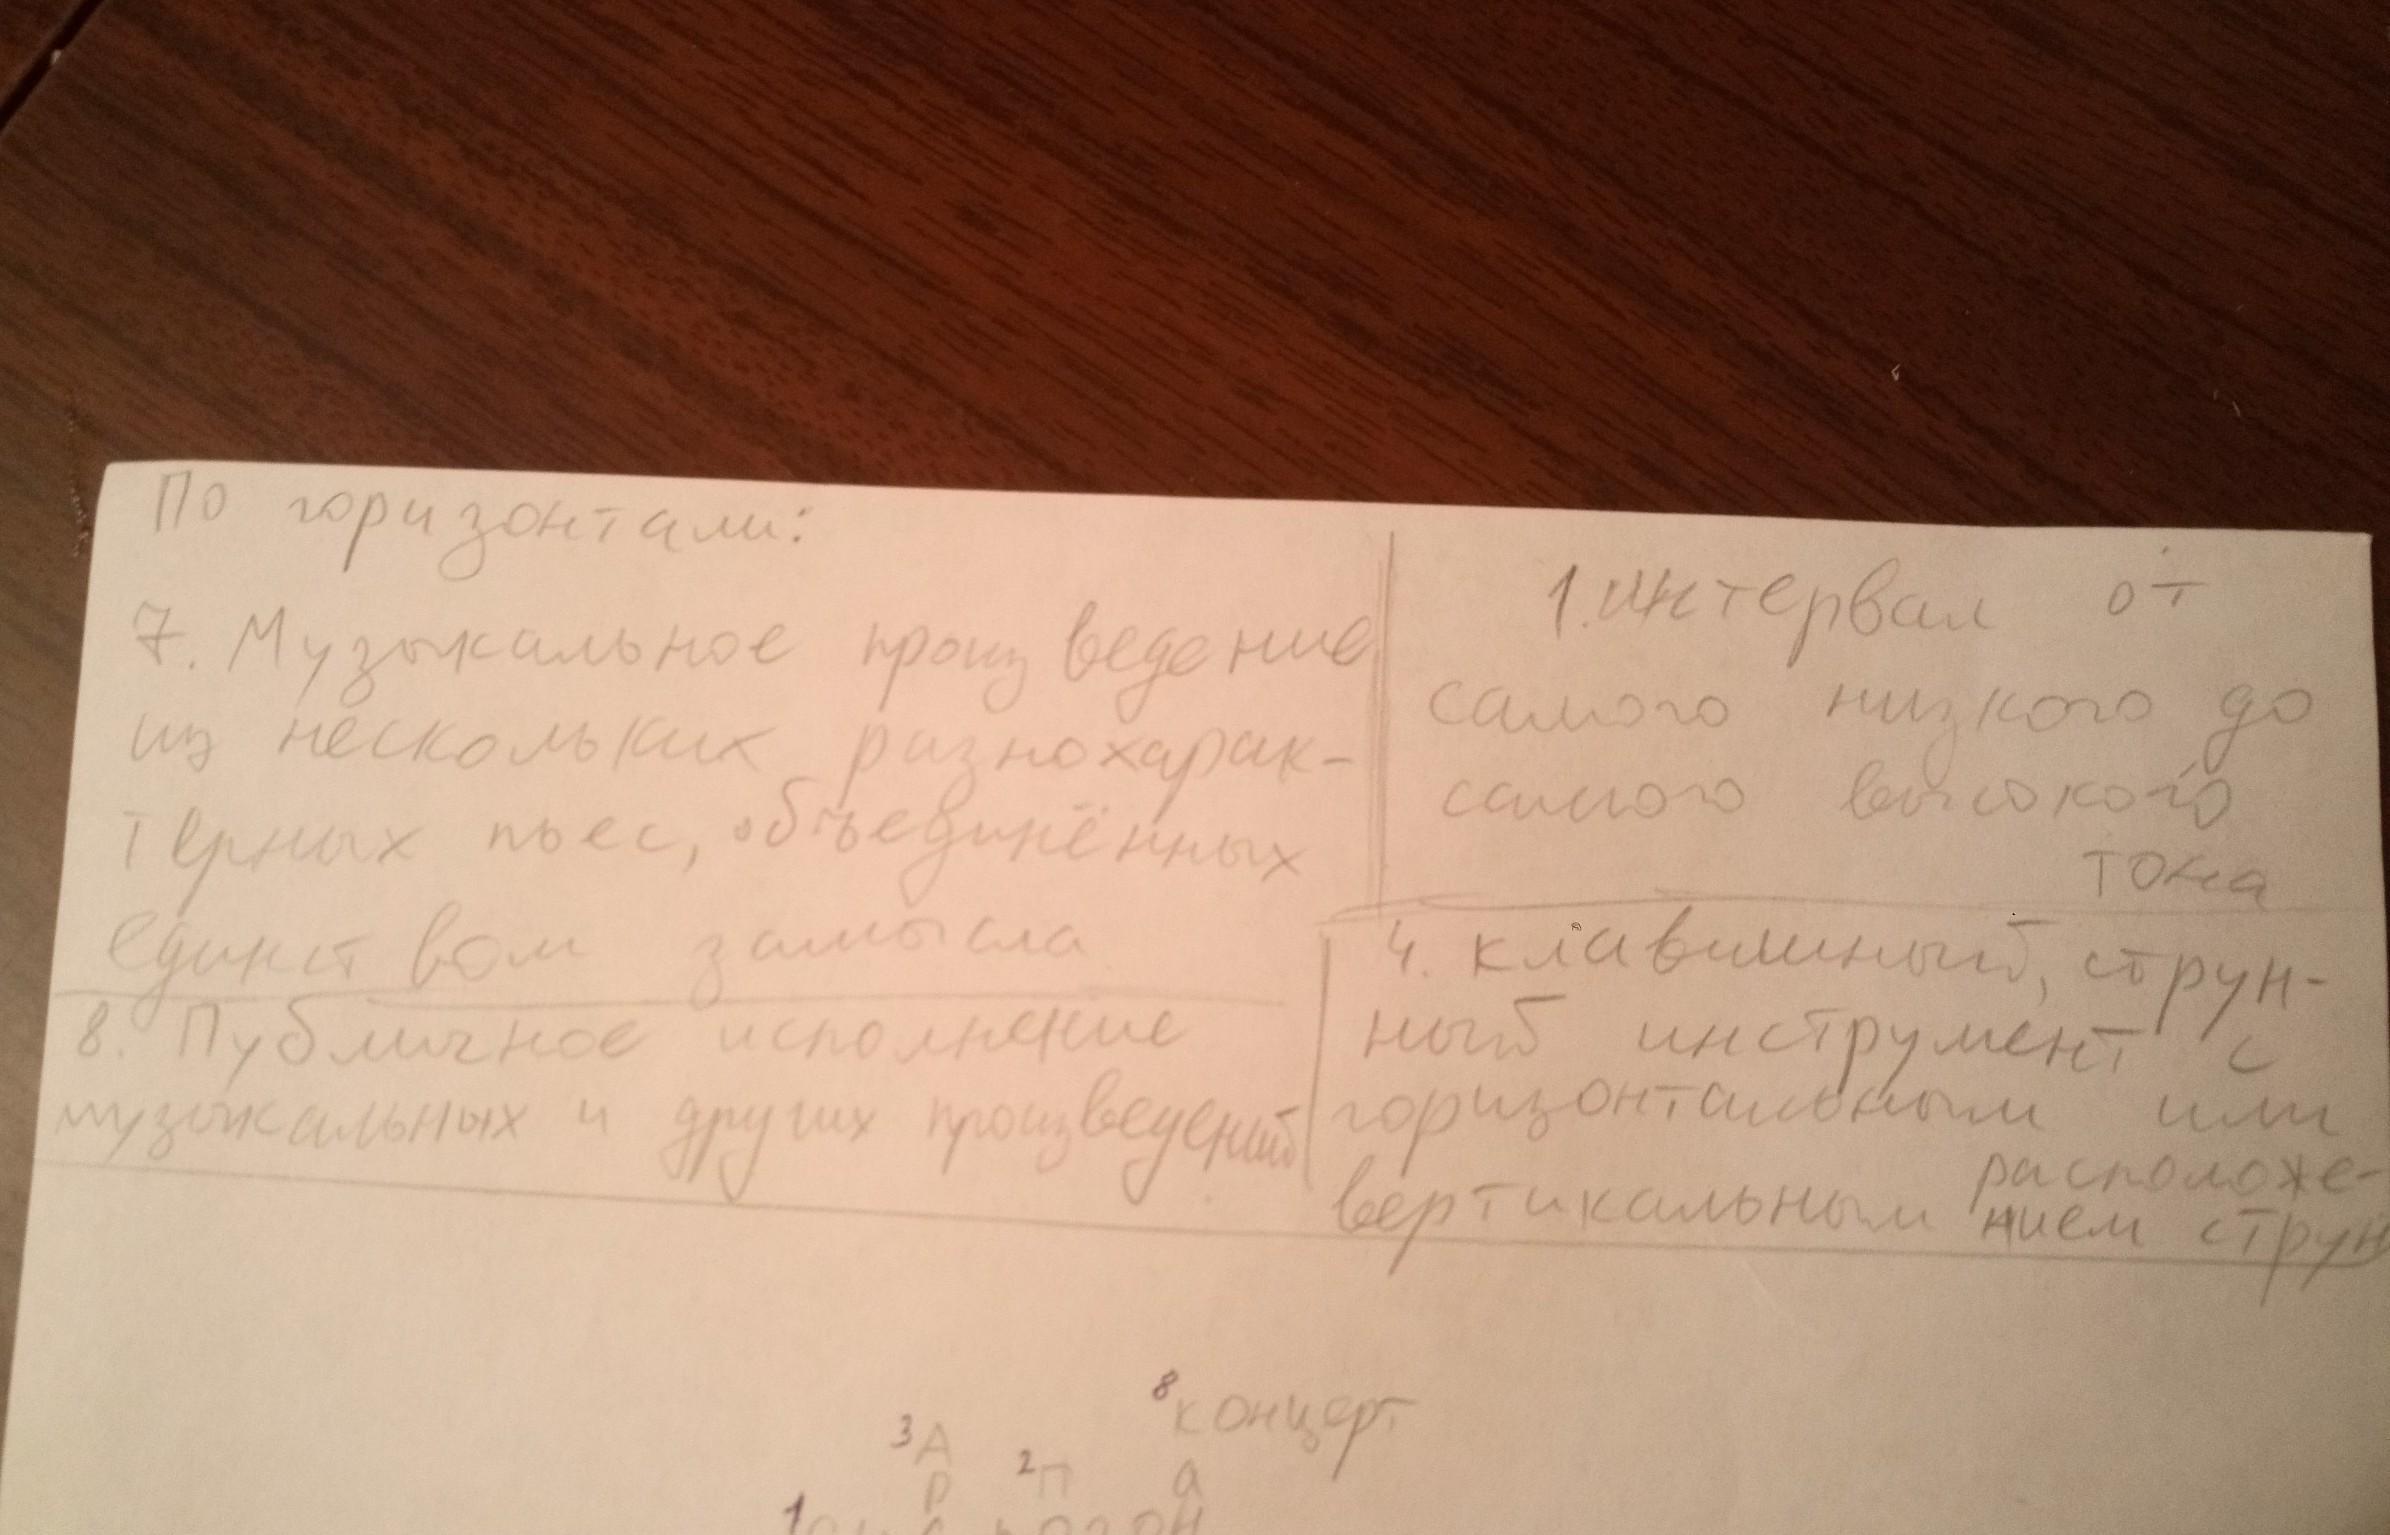 По горизонтали:
7. Музыкальное произведение
из нескольких разнохарак-
терных пьес, объединённых
единством замысла
8. Публичное исполнение
музыкальных и других произведений
1. Интервал от
самого низкого до
самого высокого
тона
4. клавишный, струн-
ный инструмент с
горизонтальным или
вертикальным расположе-
нием струн
8 концерт
3 А
2 П а
Р
1